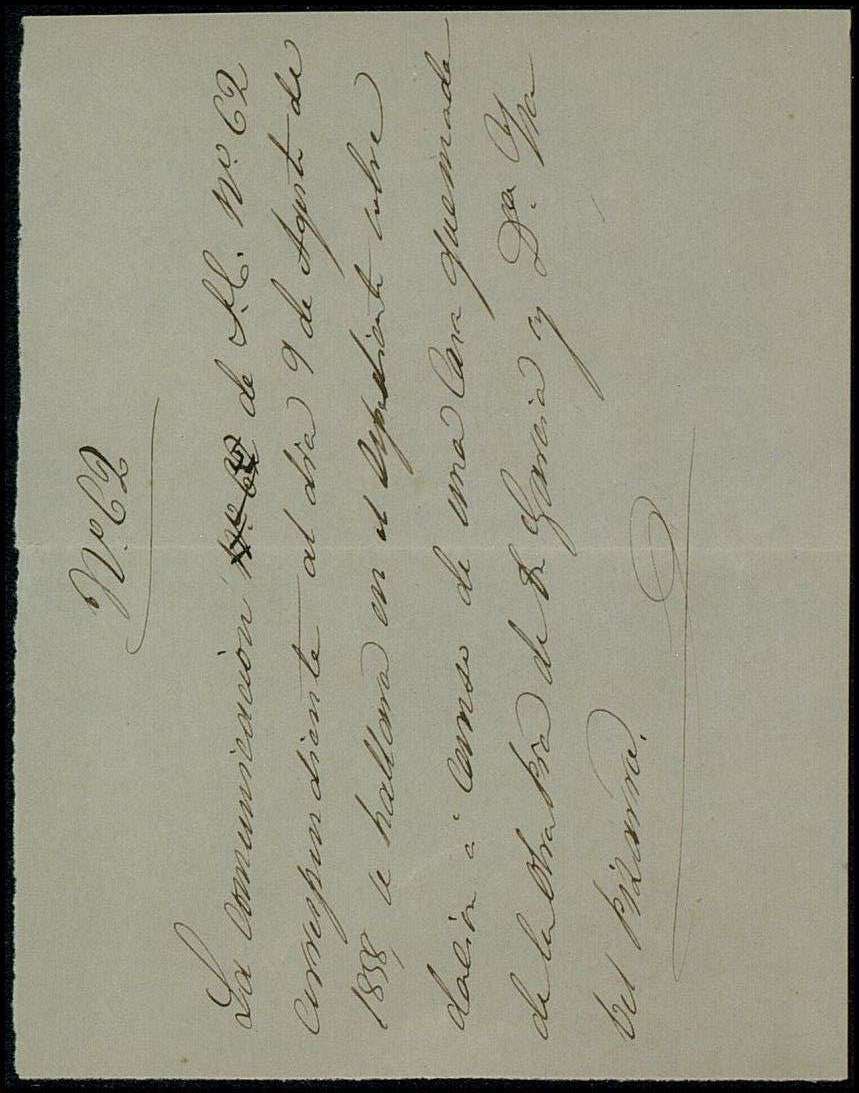 Nº 62
La comunicacion Nº 62 de S.E. Nº 62
correspondiente al dia 9 de Agosto de
1858, se hallara en el Expediente sobre
dacion a Censo de una Casa quemada
de la Obra Pia de Dn Garcia y Da Yna
del Pizarro.